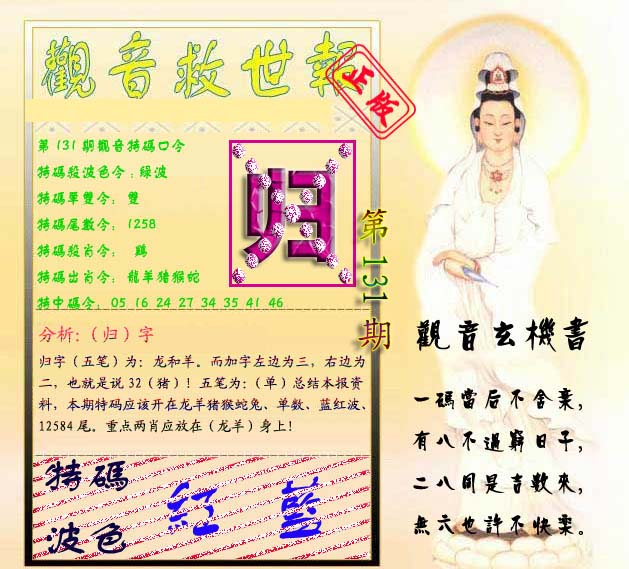 觀音救世報
正版
第131期觀音特碼口令
特碼殺波色令：綠波
特碼單雙令： 雙
特碼尾數令： 1258
特碼殺肖令： 鷄
特碼出肖令： 龍羊猪猴蛇
特中碼令： 05 16 24 27 34 35 41 46
归
第131期
分析:（归）字
归字（五笔）为：龙和羊。而加字左边为三，右边为
二，也就是说 32（猪）！五笔为：（单）总结本报资
料，本期特码应该开在龙羊猪猴蛇兔、单数、蓝红波、
12584 尾。重点两肖应放在（龙羊）身上！
特碼
波色
紅 藍
觀音玄機書
一碼當后不舍棄，
有八不過窮日子，
二八同是吉數來，
無六也許不快樂。